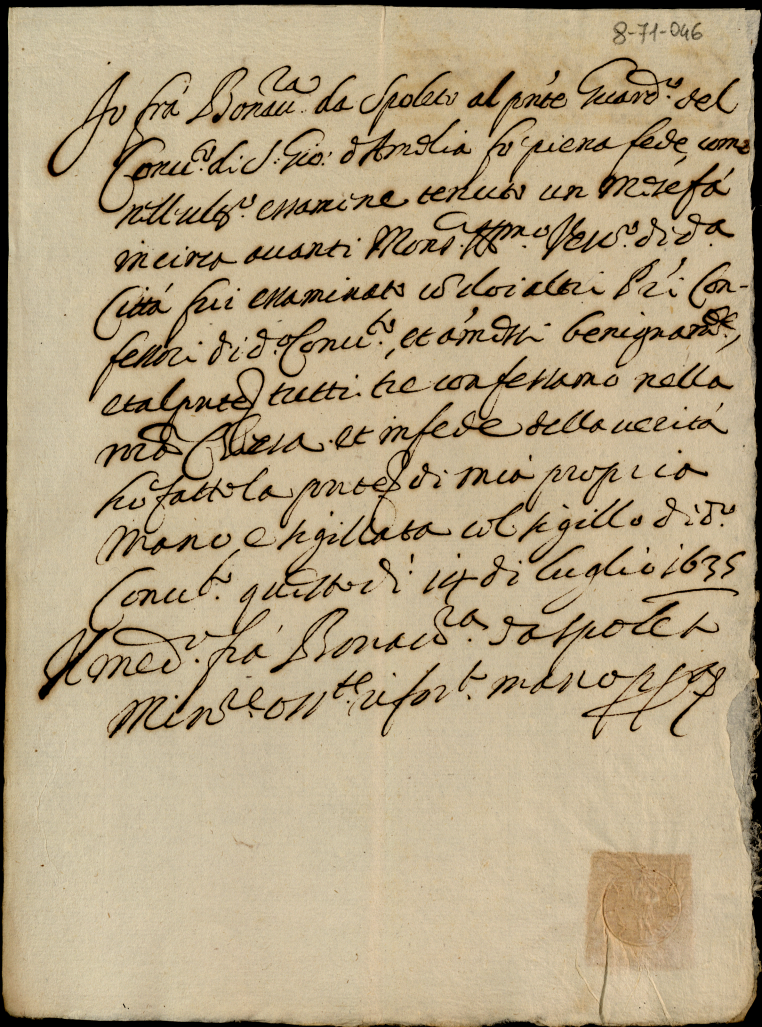 8-71-046
Io fra Bonau.ra da Spoleto al pñte Guard.o del
Conu.to di S. Gio: d'Amelia fò piena fede, come
nell'ult.o essamine tenuto un mese fà
incirca auanti Mons.r Ill.mo Vesc.o di d.a
Città fui essaminato cõ doi altri P.ri Con-
fessori di d.o Conu.to, et ammessi benignam.te,
et al pñte tutti tre confessamo nella
nr̃a Chiesa. et in fede della uerità
hò fatto la pñte di mia propria
mano, e sigillata col sigillo di d.o
Conu.to questo dì 14 di luglio 1635
Il med.o fra Bonau.ra da Spoleto
Min.re oss.te rifor.to mano ppa